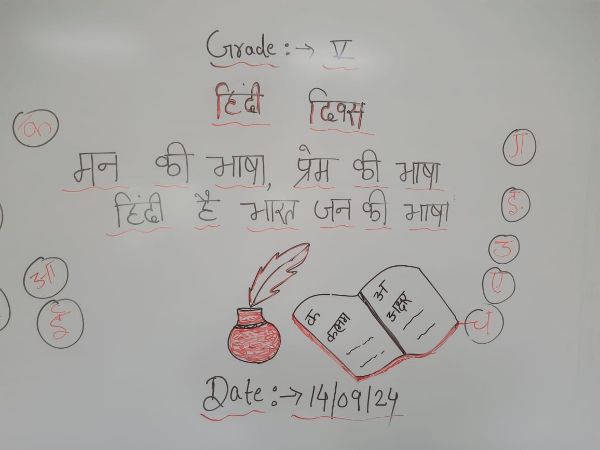 Grade :→ V
हिंदी दिवस
मन की भाषा, प्रेम की भाषा
हिंदी है भारत जन की भाषा
क
आ
ई
ग
इ
उ
ए
घ
क
कलम
अ
अक्षर
Date :→ 14/09/24